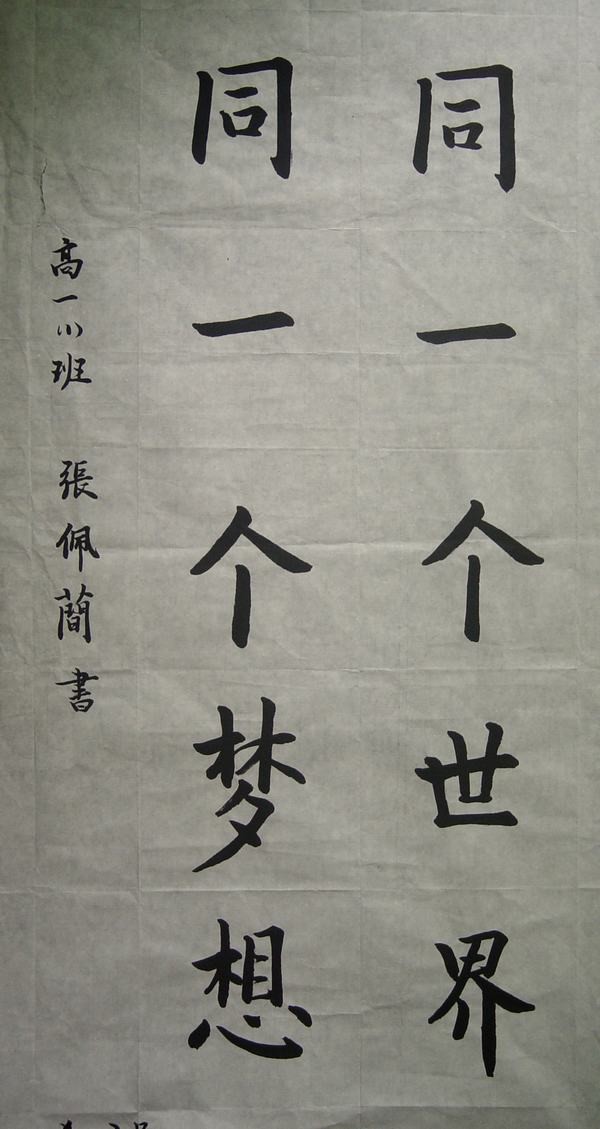 同一个世界
同一个梦想
高一(1)班 張佩蕳書